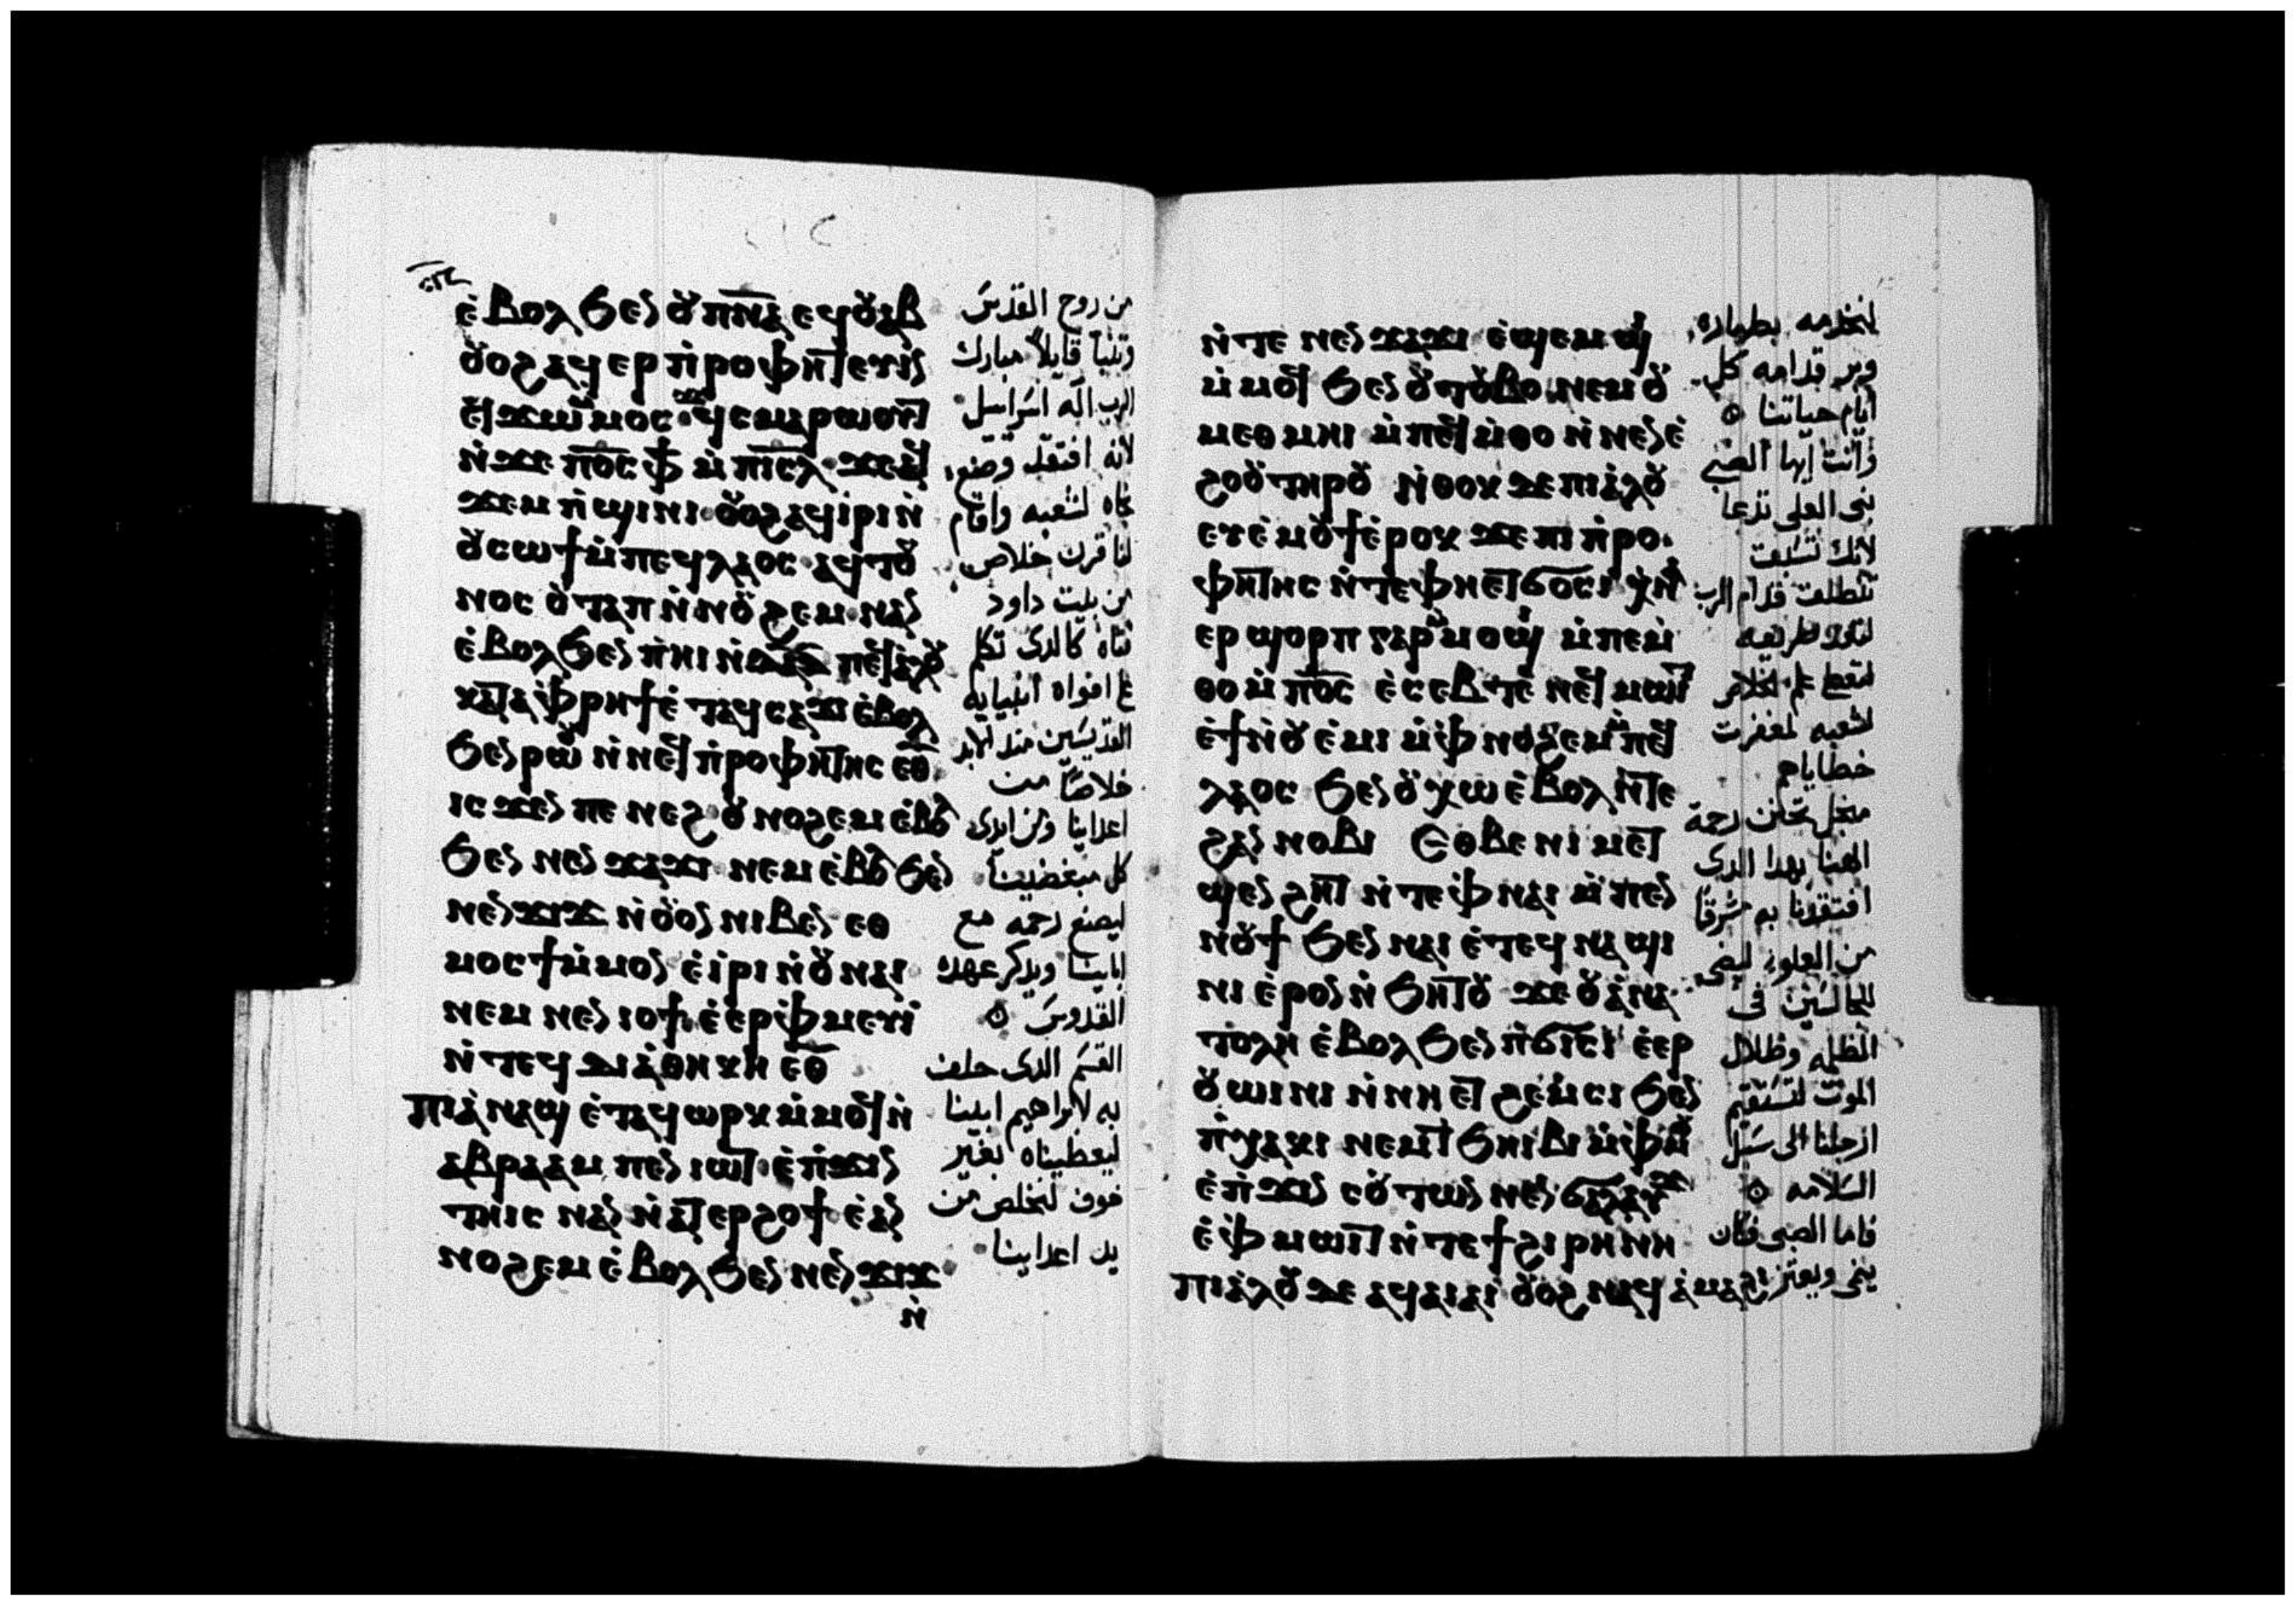 ⲉ̀ⲃⲟⲗϧⲉⲛ ⲟⲩⲡⲛ̅ⲁ̅ ⲉϥⲟⲩⲁⲃ
ⲟⲩⲟϩ ⲁϥⲉⲣⲡ̀ⲣⲟⲫⲏⲧⲉⲩⲓⲛ
ⲉϥϫⲱ ⲙⲙⲟⲥ ϫⲉ ϥⲥⲙⲁⲣⲱⲟⲩⲧ
ⲛ̀ϫⲉ ⲡⲟ̅ⲥ̅ ⲫϯ ⲙ̀ⲡⲓⲥ̅ⲗ̅ ϫⲉⲁϥ
ϫⲉⲙⲡ̀ϣⲓⲛⲓ ⲟⲩⲟϩ ⲁϥⲓ̀ⲣⲓ ⲛ̀
ⲟⲩⲥⲱϯ ⲙ̀ⲡⲉϥⲗⲁⲟⲥ ⲁϥⲧⲟⲩ
ⲛⲟⲥ ⲟⲩⲧⲁⲡ ⲛ̀ⲛⲟⲩϩⲉⲙ ⲛⲁⲛ
ⲉ̀ⲃⲟⲗϧⲉⲛ ⲡ̀ⲏⲓ ⲛ̀ⲇⲁⲇ ⲡⲉϥⲁ̀ⲗⲟⲩ
ⲕⲁⲧⲁ ⲫ̀ⲣⲏϯ ⲉ̀ⲧⲁϥⲥⲁϫⲓ ⲉ̀ⲃⲟⲗ
ϧⲉⲛ ⲣⲱⲟⲩ ⲛ̀ⲛⲉϥⲡ̀ⲣⲟⲫⲏⲧⲏⲥ ⲉ̅ⲑ̅
ⲓⲥϫⲉⲛ ⲡⲉⲛⲉϩ ⲟⲩⲛⲟϩⲉⲙ ⲉ̀ⲃⲟⲗ
ϧⲉⲛ ⲛⲉⲛϫⲁϫⲓ ⲛⲉⲙ ⲉ̀ⲃⲟⲗ ϧⲉⲛ
ⲛⲉⲛϫⲓϫ ⲛ̀ⲟⲩⲟⲛ ⲛⲓⲃⲉⲛ ⲉⲑ
ⲙⲟⲥϯ ⲙ̀ⲙⲟⲛ ⲉ̀ⲓ̀ⲣⲓ ⲛ̀ⲟⲩⲛⲁⲓ
ⲛⲉⲙ ⲛⲉⲛⲓⲟϯ ⲉ̀ⲉⲣⲫ̀ⲙⲉⲩⲓ
ⲛ̀ⲧⲉϥⲇⲓⲁ̀ⲑⲏⲕⲏ ⲉ̅ⲑ̅
ⲡⲓⲁ̀ⲛⲁϣ ⲉ̀ⲧⲁϥⲱⲣⲕ ⲙ̀ⲙⲟϥ ⲛ̀
ⲁⲃⲣⲁⲁⲙ ⲡⲉⲛⲓⲱⲧ ⲉ̀ⲡ̀ϫⲓⲛ
ⲧⲏⲓⲥ ⲛⲁⲛ ⲛ̀ⲁⲧⲉⲣϩⲟϯ ⲉ̀ⲁⲛ
ⲛⲟϩⲉⲙ ⲉ̀ⲃⲟⲗϧⲉⲛ ⲛⲉⲛϫⲓϫ
ⲛ̀
من روح القدس
وتنبأ قايلاً مبارك
الرب اله اسراسل
لانه افتقد وصنع
نجاه لشعبه واقام
لنا قرن خلاص
من بيت داود
فتاه كالدى تكلم
القديسين مند الابد
خلاصًا من
اعداينا ومن ايدى
كل مبغضينا
ليصنع رحمه مع
اباينا ويدكر عهده
القدوس
القسم الدى حلف
به لابراهيم ابينا
ليعطيناه بغير
خوف لنخلص من
يد اعداينا
ⲛ̀ⲧⲉ ⲛⲉⲛϫⲁϫⲓ ⲉ̀ϣⲉⲙϣⲓ
ⲙ̀ⲙⲟϥ ϧⲉⲛ ⲟⲩⲧⲟⲩⲃⲟ ⲛⲉⲙ ⲟⲩ
ⲙⲉⲑⲙⲏⲓ ⲙ̀ⲡⲉϥⲙ̀ⲑⲟ ⲛ̀ⲛⲉⲛⲉ̀
ϩⲟⲟⲩ ⲧⲏⲣⲟⲩ ⲛ̀ⲑⲟⲕ ϫⲉ ⲡⲓⲁ̀ⲗⲟⲩ
ⲉⲩⲉ̀ⲙⲟⲩϯ ⲉ̀ⲣⲟⲕ ϫⲉ ⲡⲓⲡ̀ⲣⲟ
ⲫⲏⲧⲏⲥ ⲛ̀ⲧⲉ ⲫⲏⲉⲧϭⲟⲥⲓ ⲭⲛⲁ
ⲉⲣϣⲟⲣⲡ ⲅⲁⲣ ⲙ̀ⲙⲟϣⲓ ⲙ̀ⲡⲉⲙ̀
ⲑⲟ ⲙ̀ⲡⲟ̅ⲥ̅ ⲉ̀ⲥⲉⲃⲧⲉ ⲛⲉϥⲙⲱⲓⲧ
ⲉ̀ϯ ⲛ̀ⲟⲩⲉ̀ⲙⲓ ⲙ̀ⲫ̀ⲛⲟϩⲉⲙ ⲙ̀ⲡⲉϥ
ⲗⲁⲟⲥ ϧⲉⲛ ⲟⲩⲭⲱ ⲉ̀ⲃⲟⲗ ⲛ̀ⲧⲉ
ϩⲁⲛⲛⲟⲃⲓ Ⲉⲑⲃⲉ ⲛⲓⲙⲉⲧ
ϣⲉⲛϩⲏⲧ ⲛ̀ⲧⲉ ⲫ̀ⲛⲁⲓ ⲙ̀ⲡⲉⲛ
ⲛⲟⲩϯ ϧⲉⲛ ⲛⲁⲓ ⲉ̀ⲧⲉϥⲛⲁϣⲓ
ⲛⲓ ⲉ̀ⲣⲟⲛ ⲛ̀ϧⲏⲧⲟⲩ ϫⲉ ⲟⲩⲁ̀ⲛⲁ
ⲧⲟⲗⲏ ⲉ̀ⲃⲟⲗϧⲉⲛ ⲡ̀ϭⲓⲥⲓ ⲉ̀ⲉⲣ
ⲟⲩⲱⲓⲛⲓ ⲛ̀ⲛⲏⲉⲧϩⲉⲙⲥⲓ ϧⲉⲛ
ⲡ̀ⲭⲁⲕⲓ ⲛⲉⲙ ⲧϧⲏⲓⲃⲓ ⲙ̀ⲫ̀ⲙⲟⲩ
ⲉ̀ⲡ̀ϫⲓⲛⲥⲟⲩⲧⲱⲛ ⲛⲉⲛϭⲁⲗⲁⲩϫ
ⲉ̀ⲫ̀ⲙⲱⲓⲧ ⲛ̀ⲧⲉ ϯϩⲓⲣⲏⲛⲏ
ⲡⲓⲁ̀ⲗⲟⲩ ⲇⲉ ⲁϥⲁⲓⲁⲓ ⲟⲩⲟϩ ⲛⲁϥⲁ̀ⲙⲁϩⲓ
لنخدمه بطهاره
وبر قدامه كل
ايام حياتنا
وانت ايها الصبى
نبى العلى تدعا
لانك تسبق
تنطلق قدام الرب
لتعد طريقه
لتعطى علم الخلاص
لشعبه لمغفرت
خطاياهم
مجل تحنن رحمة
الهنا بهدا الدى
افتقدنا به شرقًا
من العلو ليضى
للجالسين فى
الظلمه وظلال
الموت لتستقيم
ارجلنا الى سبل
السلامه
فاما الصبى فكان
ينمى ويعتز